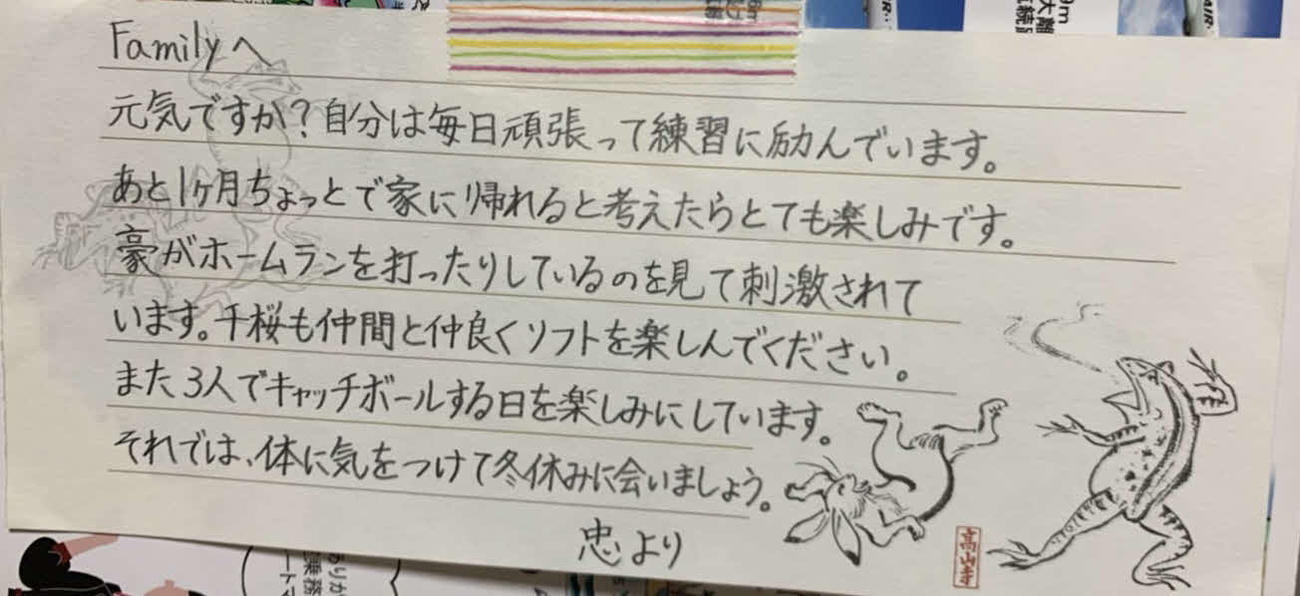 Familyへ
元気ですか?自分は毎日頑張って練習に励んでいます。
あと1ヶ月ちょっとで家に帰れると考えたらとても楽しみです。
豪がホームランを打ったりしているのを見て刺激されて
います。千桜も仲間と仲良くソフトを楽しんでください。
また3人でキャッチボールする日を楽しみにしています。
それでは、体に気をつけて冬休みに会いましょう。
忠より
高山寺